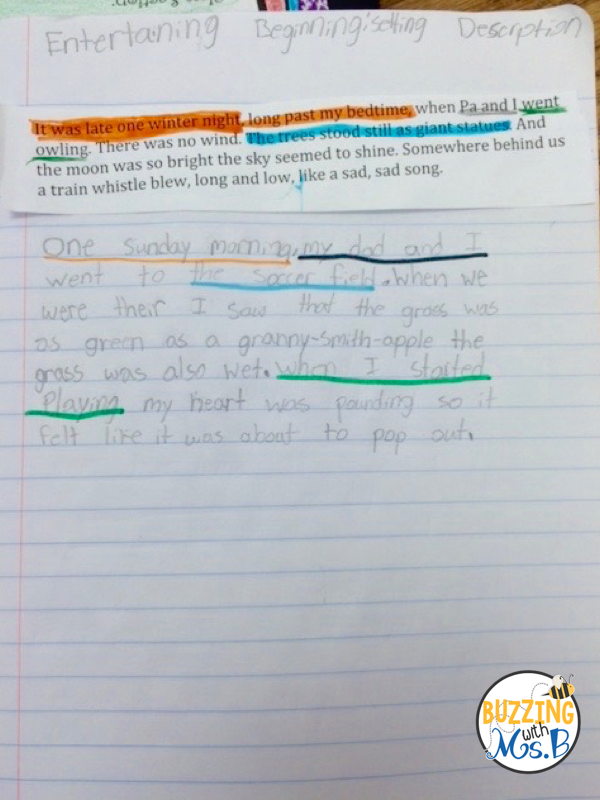 Entertaning Beginning: setting Descrption
It was late one winter night, long past my bedtime, when Pa and I went
owling. There was no wind. The trees stood still as giant statues. And
the moon was so bright the sky seemed to shine. Somewhere behind us
a train whistle blew, long and low, like a sad, sad song.
One Sunday morning, my dad and I
went to the soccer field. When we
were their I saw that the grass was
as green as a granny-smith-apple the
grass was also wet. When I started
Playing my heart was pounding so it
felt like it was about to pop out.
BUZZING
with
Ms.B